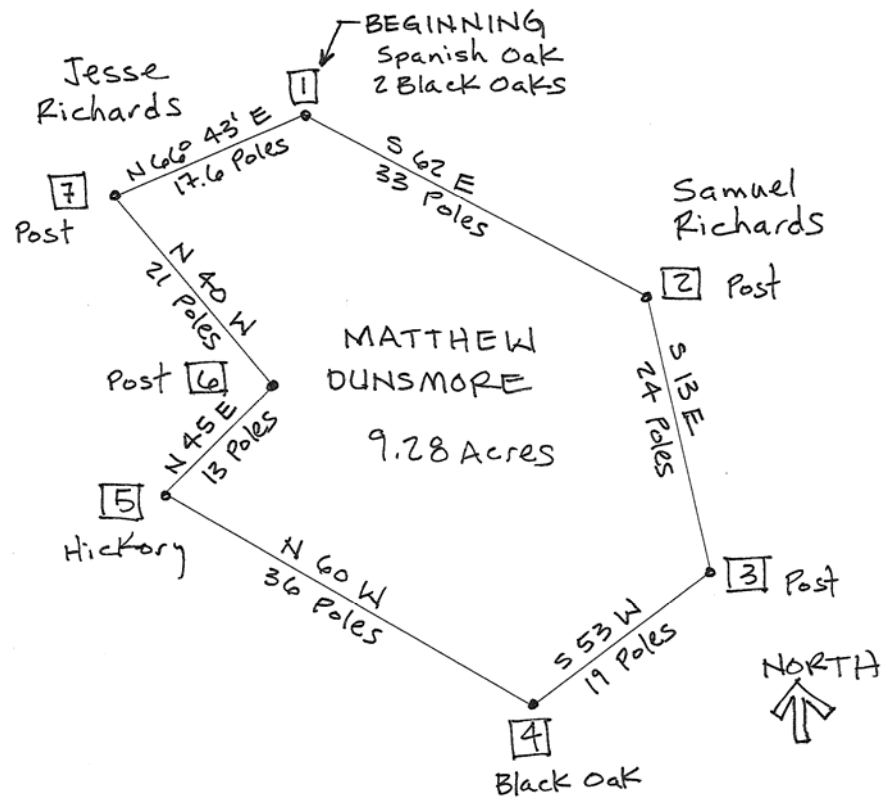 BEGINNING
Spanish Oak
2 Black Oaks
1
Jesse
Richards
N 66° 43' E
17.6 Poles
S 62 E
33 Poles
7
Post
Samuel
Richards
2 Post
N 40 W
21 Poles
MATTHEW
DUNSMORE
9.28 Acres
S 13 E
24 Poles
Post 6
N 45 E
13 Poles
5
Hickory
N 60 W
36 Poles
3 Post
S 53 W
19 Poles
NORTH
4
Black Oak